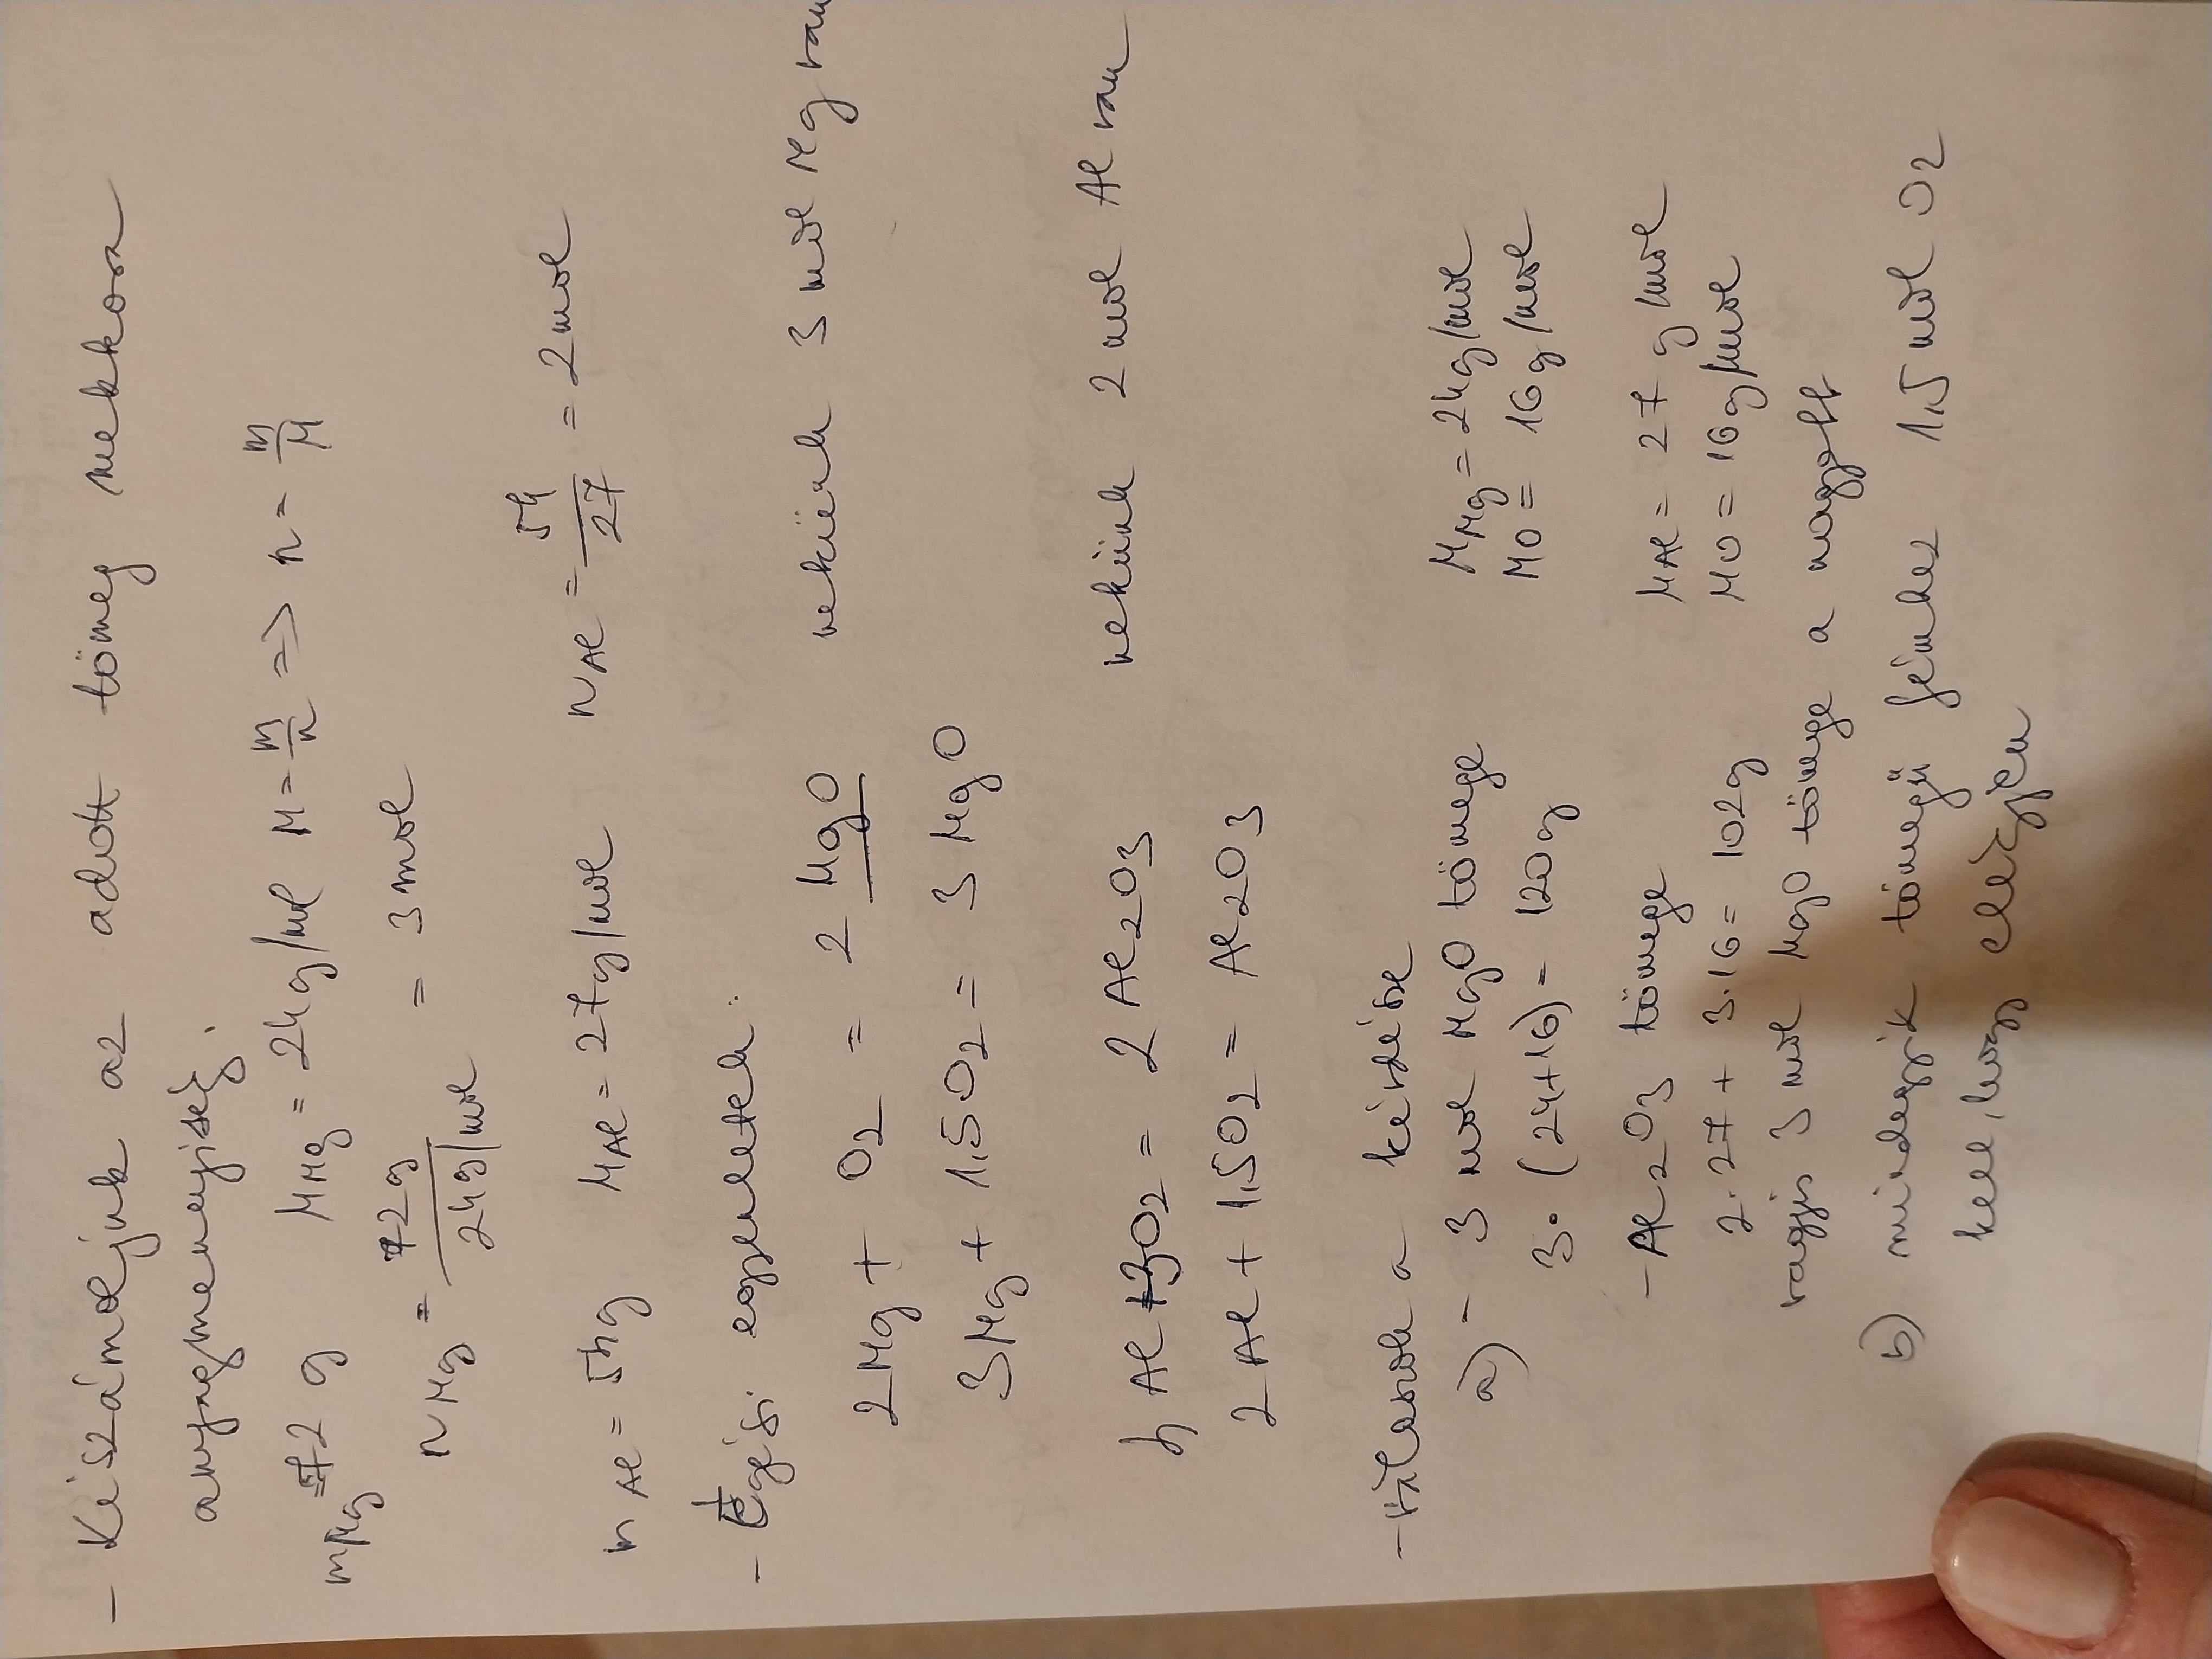 - Kiszámoljuk az adott tömeg mekkora
anyagmennyiség.
mMg = 72 g MMg = 24g/mol M = m/n => n = m/M
nMg = 72g / 24g/mol = 3 mol
mAl = 54g MAl = 27g/mol nAl = 54/27 = 2 mol
- Égési egyenletek:
2Mg + O2 = 2 MgO nekünk 3 mol Mg van
3Mg + 1.5O2 = 3 MgO
4 Al + 3O2 = 2 Al2O3 nekünk 2 mol Al van
2 Al + 1.5O2 = Al2O3
- Válaszok a kérdésre
a) - 3 mol MgO tömege MMg = 24g/mol
3·(24+16) = 120g MO = 16g/mol
- Al2O3 tömege MAl = 27 g/mol
2·27 + 3·16 = 102g MO = 16g/mol
vagyis 3 mol MgO tömege a nagyobb
b) mindegyik tömegű fémhez 1.5 mol O2
kell, hogy elégjen